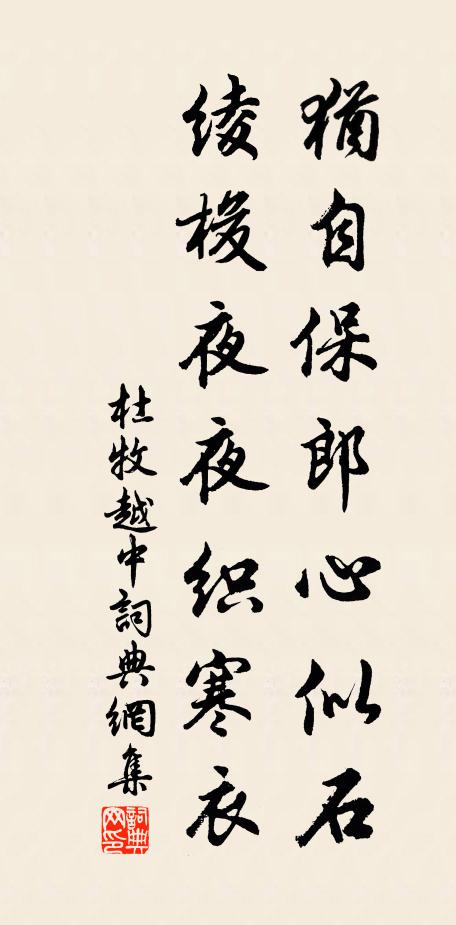 猶自保郎心似石
绫梭夜夜织寒衣
杜牧越中詞典網集
詞典网印